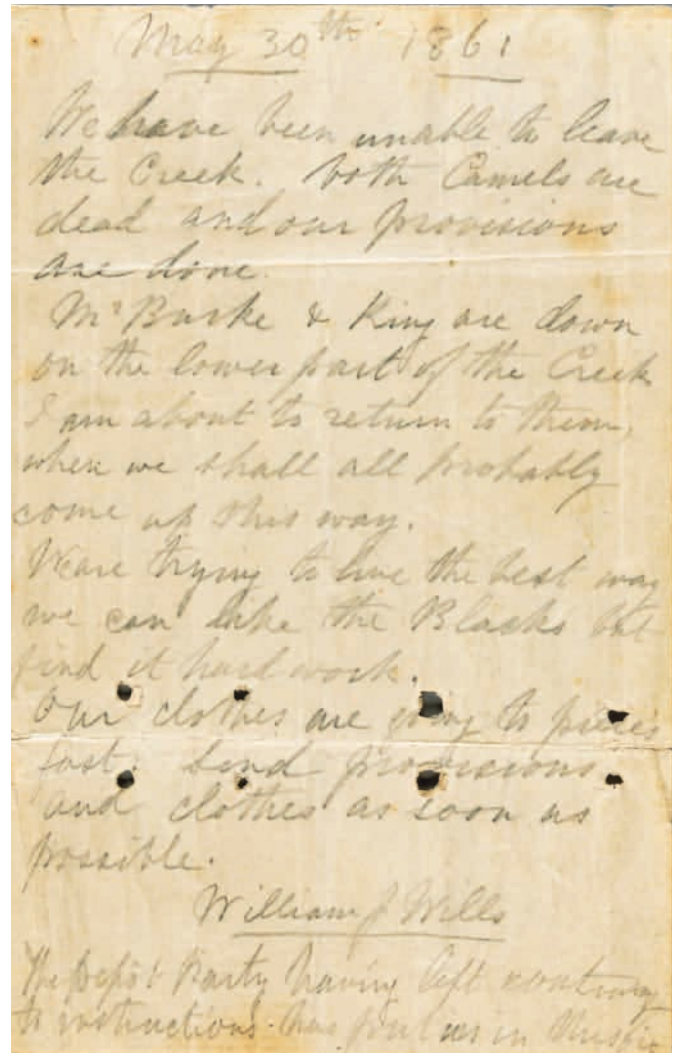 May 30th 1861
We have been unable to leave
the Creek. both Camels are
dead and our provisions
are done.
Mr Burke & King are down
on the lower part of the Creek
I am about to return to them,
when we shall all probably
come up this way.
We are trying to live the best way
we can like the Blacks but
find it hard work.
Our clothes are going to pieces
fast. Send provisions
and clothes as soon as
possible.
William J Wills
The Depôt Party having left contrary
to instructions has put us in this fix